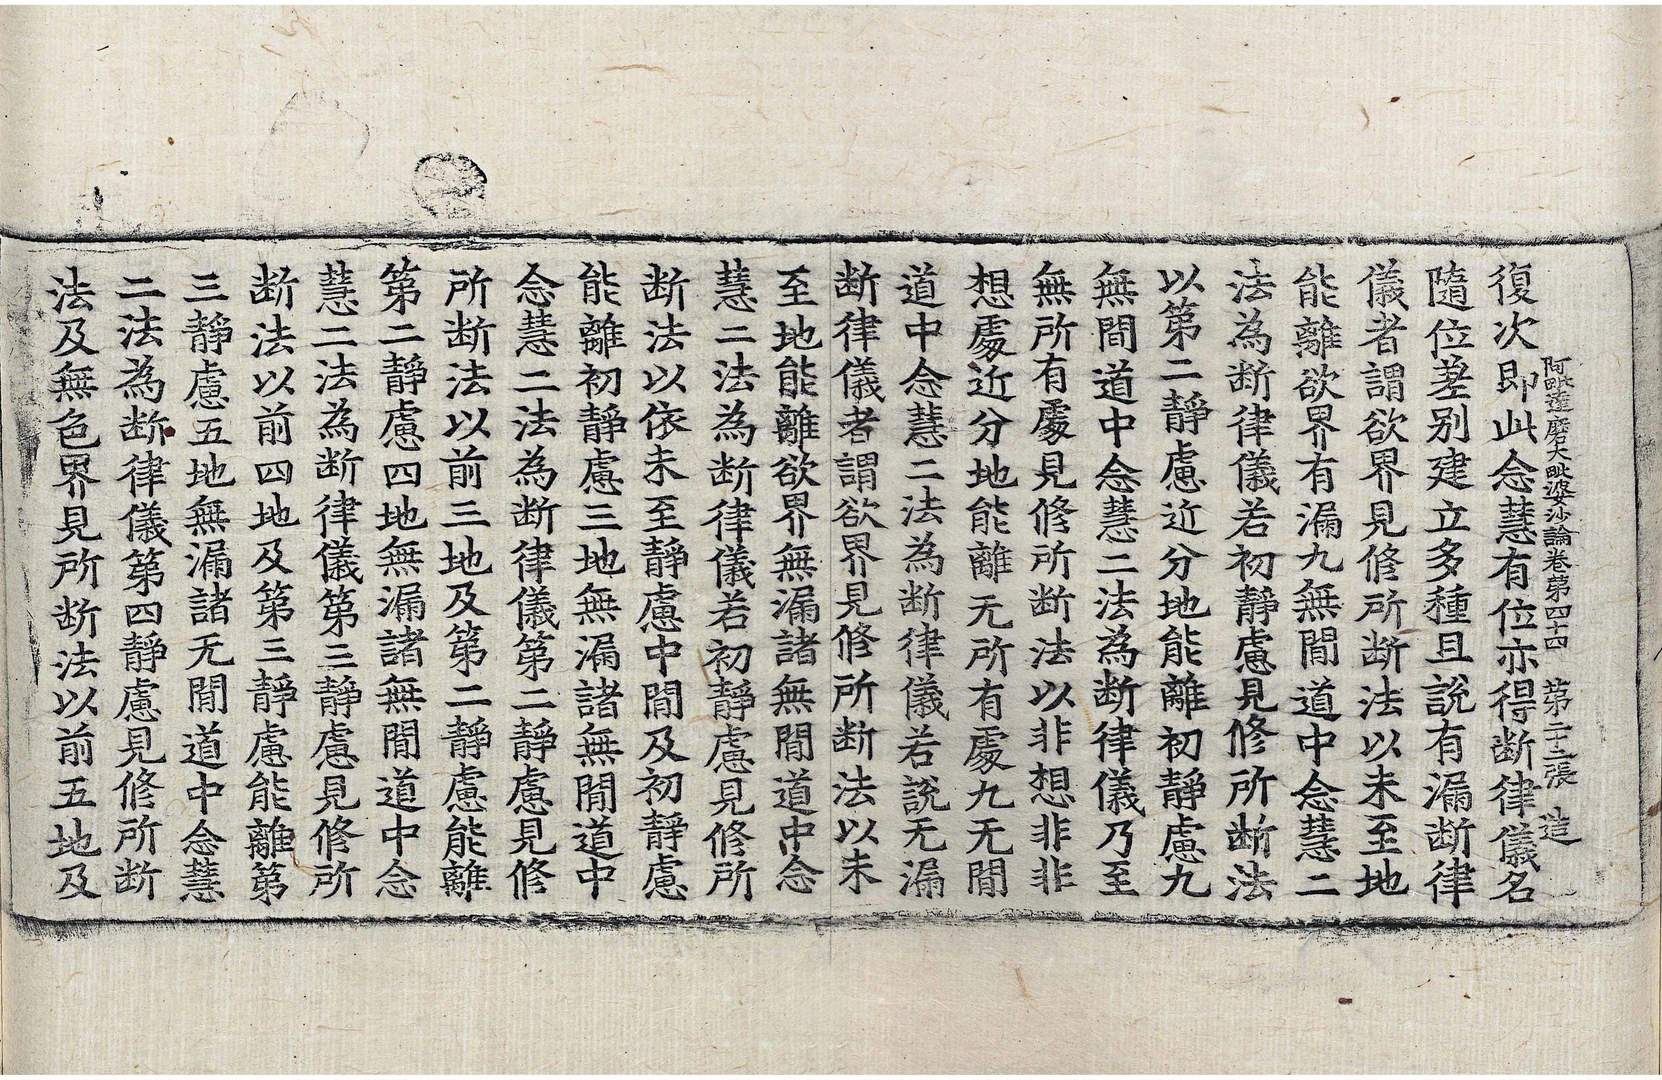 阿毗達磨大毗婆沙論卷第四十四　第二十三張　造
復次即此念慧有位亦得断律儀名
隨位差别建立多種且說有漏断律
儀者謂欲界見修所断法以未至地
能離欲界有漏九無間道中念慧二
法為断律儀若初靜慮見修所断法
以第二靜慮近分地能離初靜慮九
無間道中念慧二法為断律儀乃至
無所有處見修所断法以非想非非
想處近分地能離无所有處九无間
道中念慧二法為断律儀若說无漏
断律儀者謂欲界見修所断法以未
至地能離欲界無漏諸無間道中念
慧二法為断律儀若初靜慮見修所
断法以依未至靜慮中間及初靜慮
能離初靜慮三地無漏諸無間道中
念慧二法為断律儀第二靜慮見修
所断法以前三地及第二靜慮能離
第二靜慮四地無漏諸無間道中念
慧二法為断律儀第三靜慮見修所
断法以前四地及第三靜慮能離第
三靜慮五地無漏諸无間道中念慧
二法為断律儀第四靜慮見修所断
法及無色界見所断法以前五地及